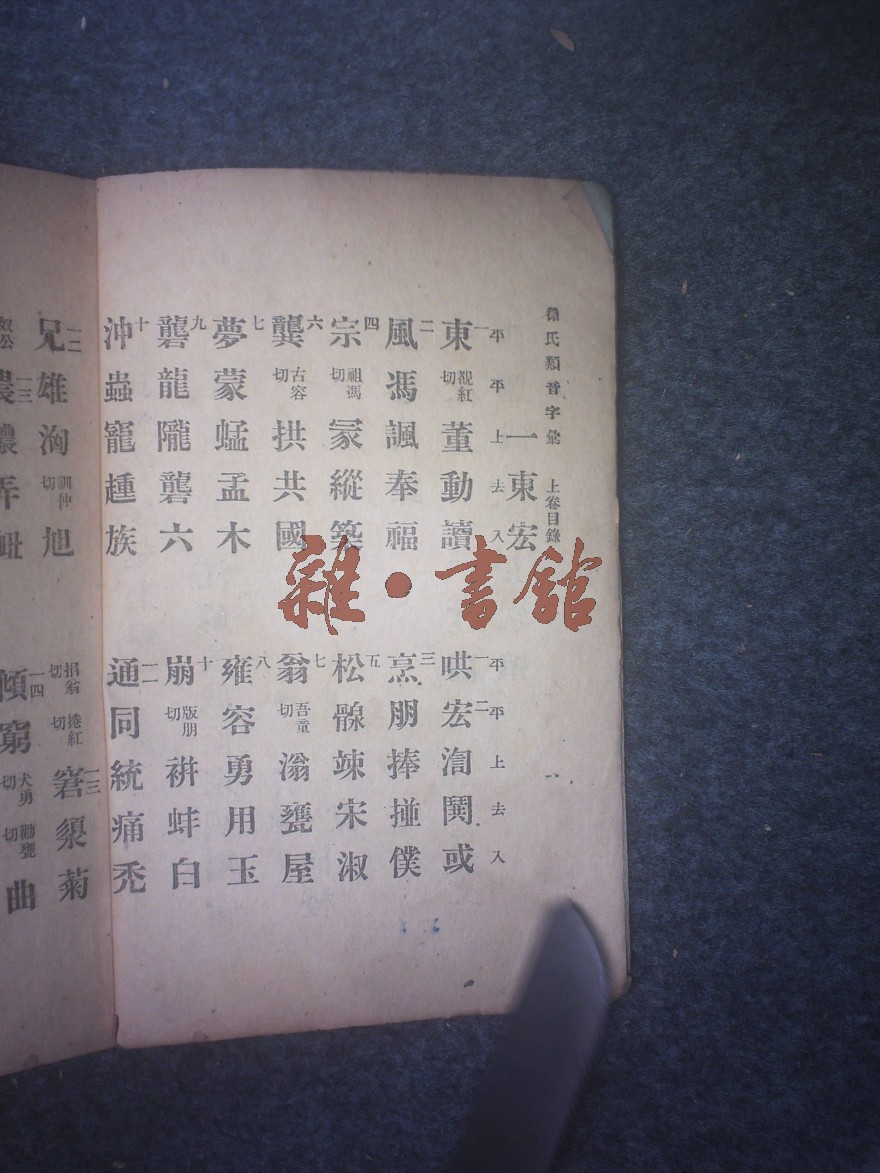 氏類音字彙 上卷目錄
一東宏
平 平 上 去 入
一 東 覩紅切 董 動 讀
二 風 馮 諷 奉 福
四 宗 祖馮切 冡 縱 築
六 龔 古容切 拱 共 國
七 夢 蒙 蜢 孟 木
九 礱 龍 隴 礱 六
十 沖 蟲 寵 踵 族
兄 雄 洶 訓仲切 旭
平 平 上 去 入
一 哄 二 宏 澒 鬨 或
三 烹 朋 捧 掽 僕
五 松 竦 宋 淑
七 翁 吾童切 滃 甕 屋
八 雍 容 勇 用 玉
十 崩 版朋切 蚌 白
通 同 統 痛 禿
捲紅切 菊
一四 傾 窮 犬勇切 曲
雜·書館